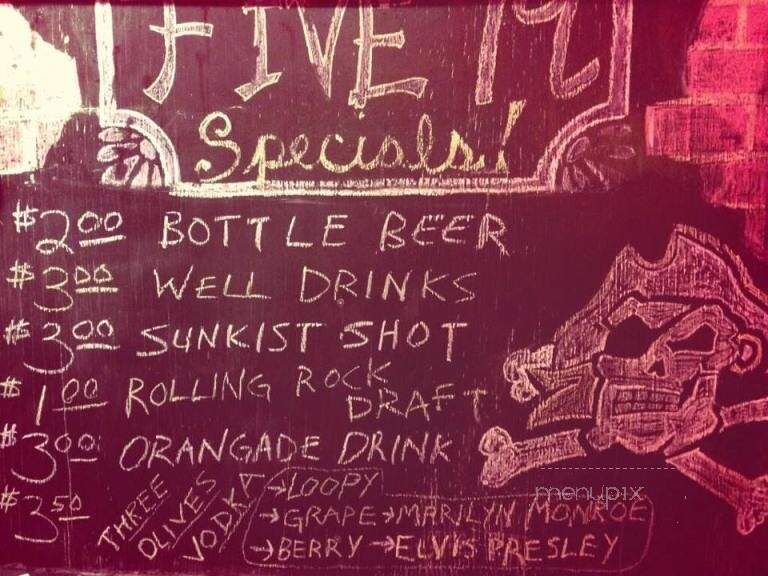 FIVE
Specials!
$2.00 BOTTLE BEER
$3.00 WELL DRINKS
$3.00 SUNKIST SHOT
$1.00 ROLLING ROCK
DRAFT
$3.00 ORANGADE DRINK
$3.50 THREE OLIVES VODKA
→LOOPY
→GRAPE→MARILYN MONROE
→BERRY→ELVIS PRESLEY
menupix